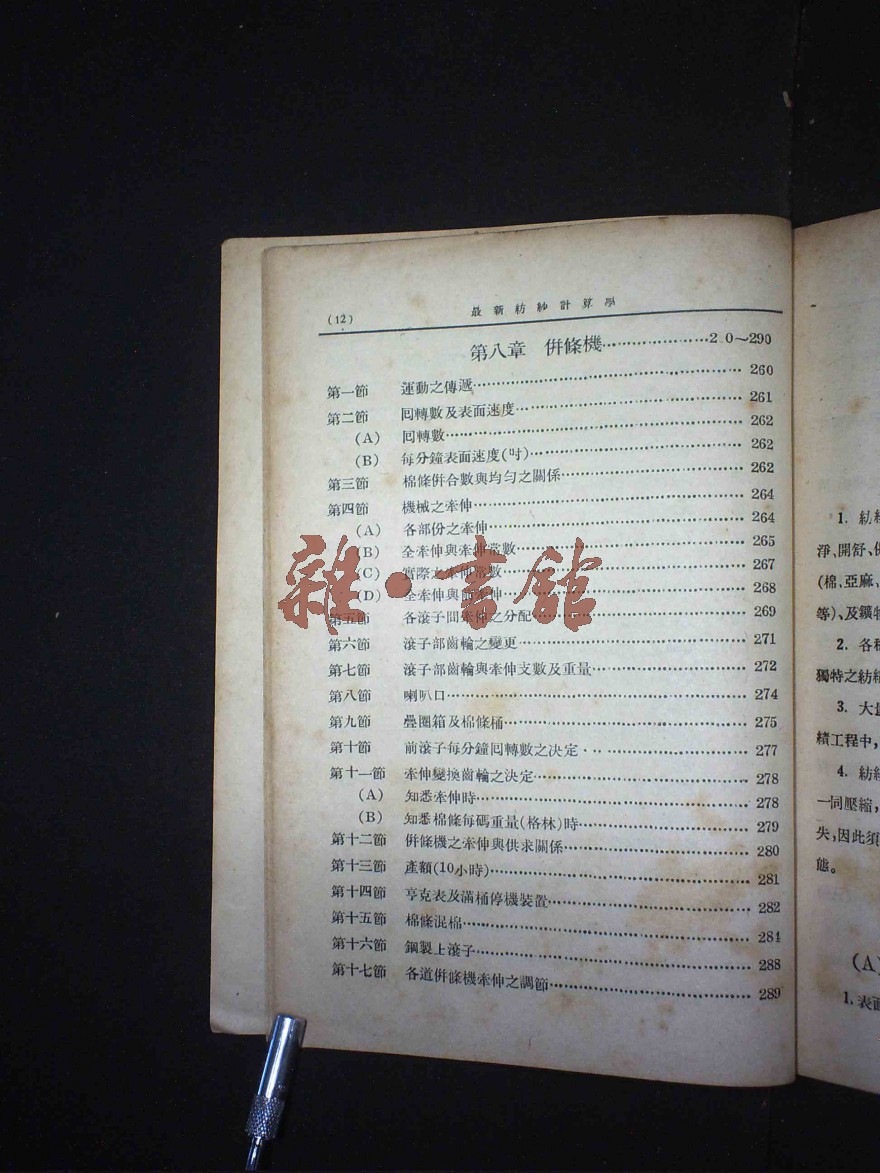 (12) 最新紡紗計算學
第八章 併條機…………………2 0～290
第一節 運動之傳遞…………………260
第二節 囘轉數及表面速度…………………261
(A) 囘轉數…………………262
(B) 每分鐘表面速度(吋)…………………262
第三節 棉條併合數與均勻之關係…………………262
第四節 機械之牽伸…………………264
(A) 各部份之牽伸…………………264
(B) 全牽伸與牽伸常數…………………265
(C) 實際之牽伸常數…………………267
(D) 全牽伸與前牽伸…………………268
第五節 各滾子間牽伸之分配…………………269
第六節 滾子部齒輪之變更…………………271
第七節 滾子部齒輪與牽伸支數及重量…………………272
第八節 喇叭口…………………274
第九節 疊圈箱及棉條桶…………………275
第十節 前滾子每分鐘囘轉數之決定…………………277
第十一節 牽伸變換齒輪之決定…………………278
(A) 知悉牽伸時…………………278
(B) 知悉棉條每碼重量(格林)時…………………279
第十二節 併條機之牽伸與供求關係…………………280
第十三節 產額(10小時)…………………281
第十四節 亨克表及滿桶停機裝置…………………282
第十五節 棉條混棉…………………284
第十六節 鋼製上滾子…………………288
第十七節 各道併條機牽伸之調節…………………289
雜·書館
1. 紡
淨、開舒、
(棉、亞麻、
等)、及鑛物
2. 各種
獨特之紡
3. 大
績工程中，
4. 紡
一同壓縮，
失，因此須
態。
(A)
1. 表面